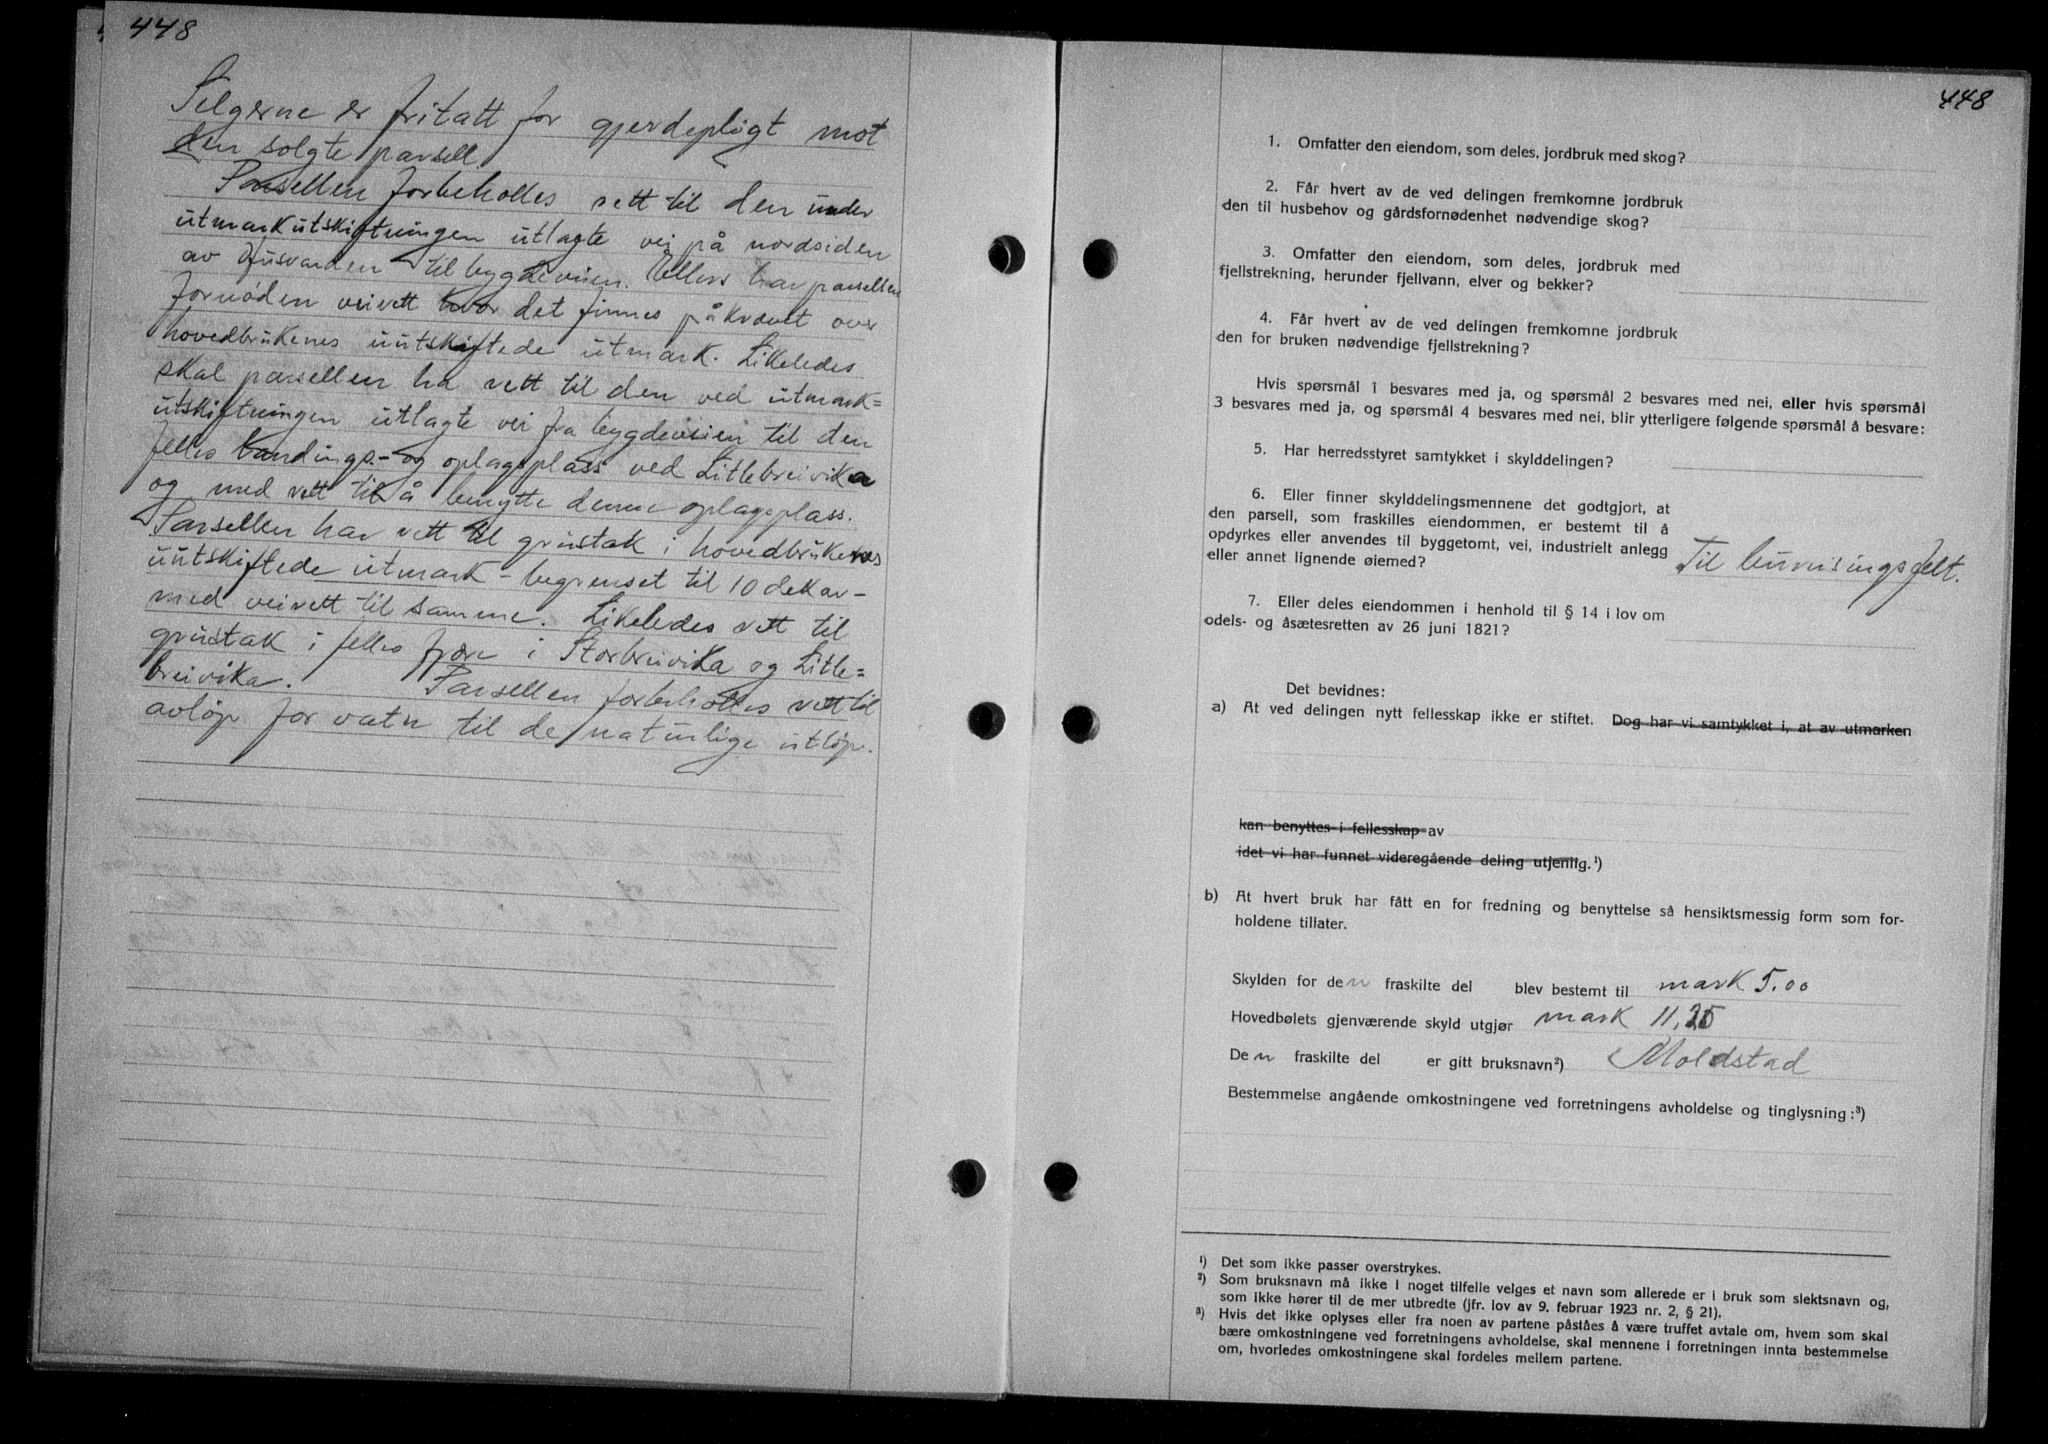 448
Selgerne er fritatt for gjerdepligt mot
den solgte parsell.
Parsellen forbeholles rett til den under
utmarkutskiftningen utlagte vei på nordsiden
av til bygdeveien. Ellers har parsellen
fornøden veirett hvor det finnes påkrævt over
hovedbrukenes uutskiftede utmark. Likeledes
skal parsellen ha rett til den ved utmark=
utskiftningen utlagte vei fra bygdeveien til den
felles landings- og oplagsplass ved Litlebreivika
og med rett til å benytte denne oplagsplass.
Parsellen har rett til grustak i hovedbrukenes
uutskiftede utmark - begrenset til 10 dekar -
med veirett til samme. Likeledes rett til
grustak i felles fjære i Storbreivika og Litle=
breivika. Parsellen forbeholles rett til
avløp for vatn til de naturlige utløp.
448
1. Omfatter den eiendom, som deles, jordbruk med skog?
2. Får hvert av de ved delingen fremkomne jordbruk
den til husbehov og gårdsfornødenhet nødvendige skog?
3. Omfatter den eiendom, som deles, jordbruk med
fjellstrekning, herunder fjellvann, elver og bekker?
4. Får hvert av de ved delingen fremkomne jordbruk
den for bruken nødvendige fjellstrekning?
Hvis spørsmål 1 besvares med ja, og spørsmål 2 besvares med nei, eller hvis spørsmål
3 besvares med ja, og spørsmål 4 besvares med nei, blir ytterligere følgende spørsmål å besvare:
5. Har herredsstyret samtykket i skylddelingen?
6. Eller finner skylddelingsmennene det godtgjort, at
den parsell, som fraskilles eiendommen, er bestemt til å
opdyrkes eller anvendes til byggetomt, vei, industrielt anlegg
eller annet lignende øiemed? Til bureisingsfelt.
7. Eller deles eiendommen i henhold til § 14 i lov om
odels- og åsætesretten av 26 juni 1821?
Det bevidnes:
a) At ved delingen nytt fellesskap ikke er stiftet. Dog har vi samtykket i, at av utmarken
kan benyttes i fellesskap av
idet vi har funnet videregående deling utjenlig.¹)
b) At hvert bruk har fått en for fredning og benyttelse så hensiktsmessig form som for-
holdene tillater.
Skylden for den fraskilte del blev bestemt til mark 5.00
Hovedbølets gjenværende skyld utgjør mark 11,25
Den fraskilte del er gitt bruksnavn²) Moldstad
Bestemmelse angående omkostningene ved forretningens avholdelse og tinglysning:³)
¹) Det som ikke passer overstrykes.
²) Som bruksnavn må ikke i noget tilfelle velges et navn som allerede er i bruk som slektsnavn og,
som ikke hører til de mer utbredte (jfr. lov av 9. februar 1923 nr. 2, § 21).
³) Hvis det ikke oplyses eller fra noen av partene påståes å være truffet avtale om, hvem som skal
bære omkostningene ved forretningens avholdelse, skal mennene i forretningen innta bestemmelse
om, hvorledes omkostningene skal fordeles mellem partene.